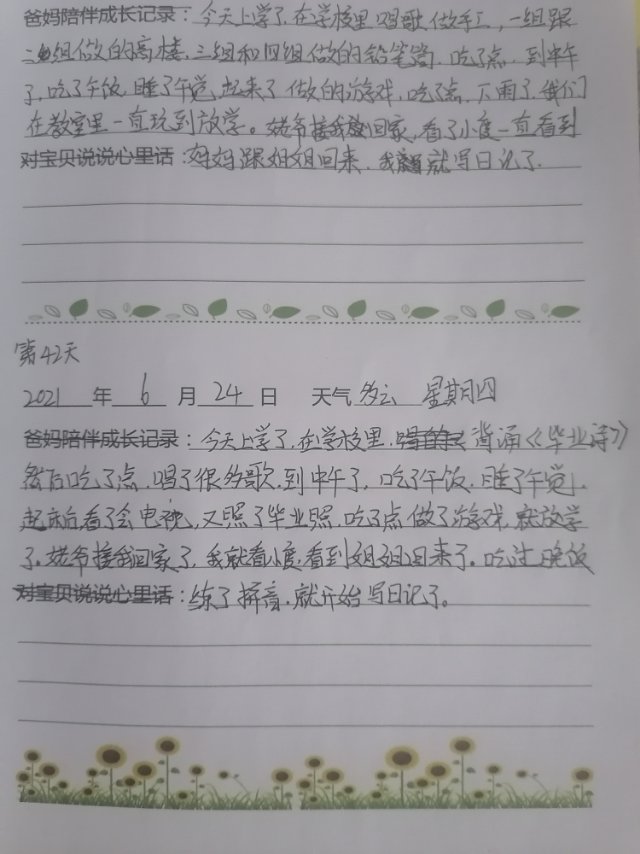 爸妈陪伴成长记录：今天上学了，在学校里唱歌，做手工，一组跟
二组做的高楼，三组和四组做的铅笔筒，吃了点，到中午
了，吃了午饭，睡了午觉，起来了做的游戏，吃了点，下雨了，我们
在教室里一直玩到放学。姥爷接我放回家，看了小度一直看到
对宝贝说说心里话：妈妈跟姐姐回来，我就写日记了．
第42天
2021年6月24日 天气多云 星期四
爸妈陪伴成长记录：今天上学了，在学校里，背诵《毕业诗》
然后吃了点，唱了很多歌，到中午了，吃了午饭，睡了午觉，
起床后看了会电视，又照了毕业照，吃了点做了游戏，就放学
了，姥爷接我回家了，我就看小度，看到姐姐回来了。吃过晚饭
对宝贝说说心里话：练了拼音，就开始写日记了。